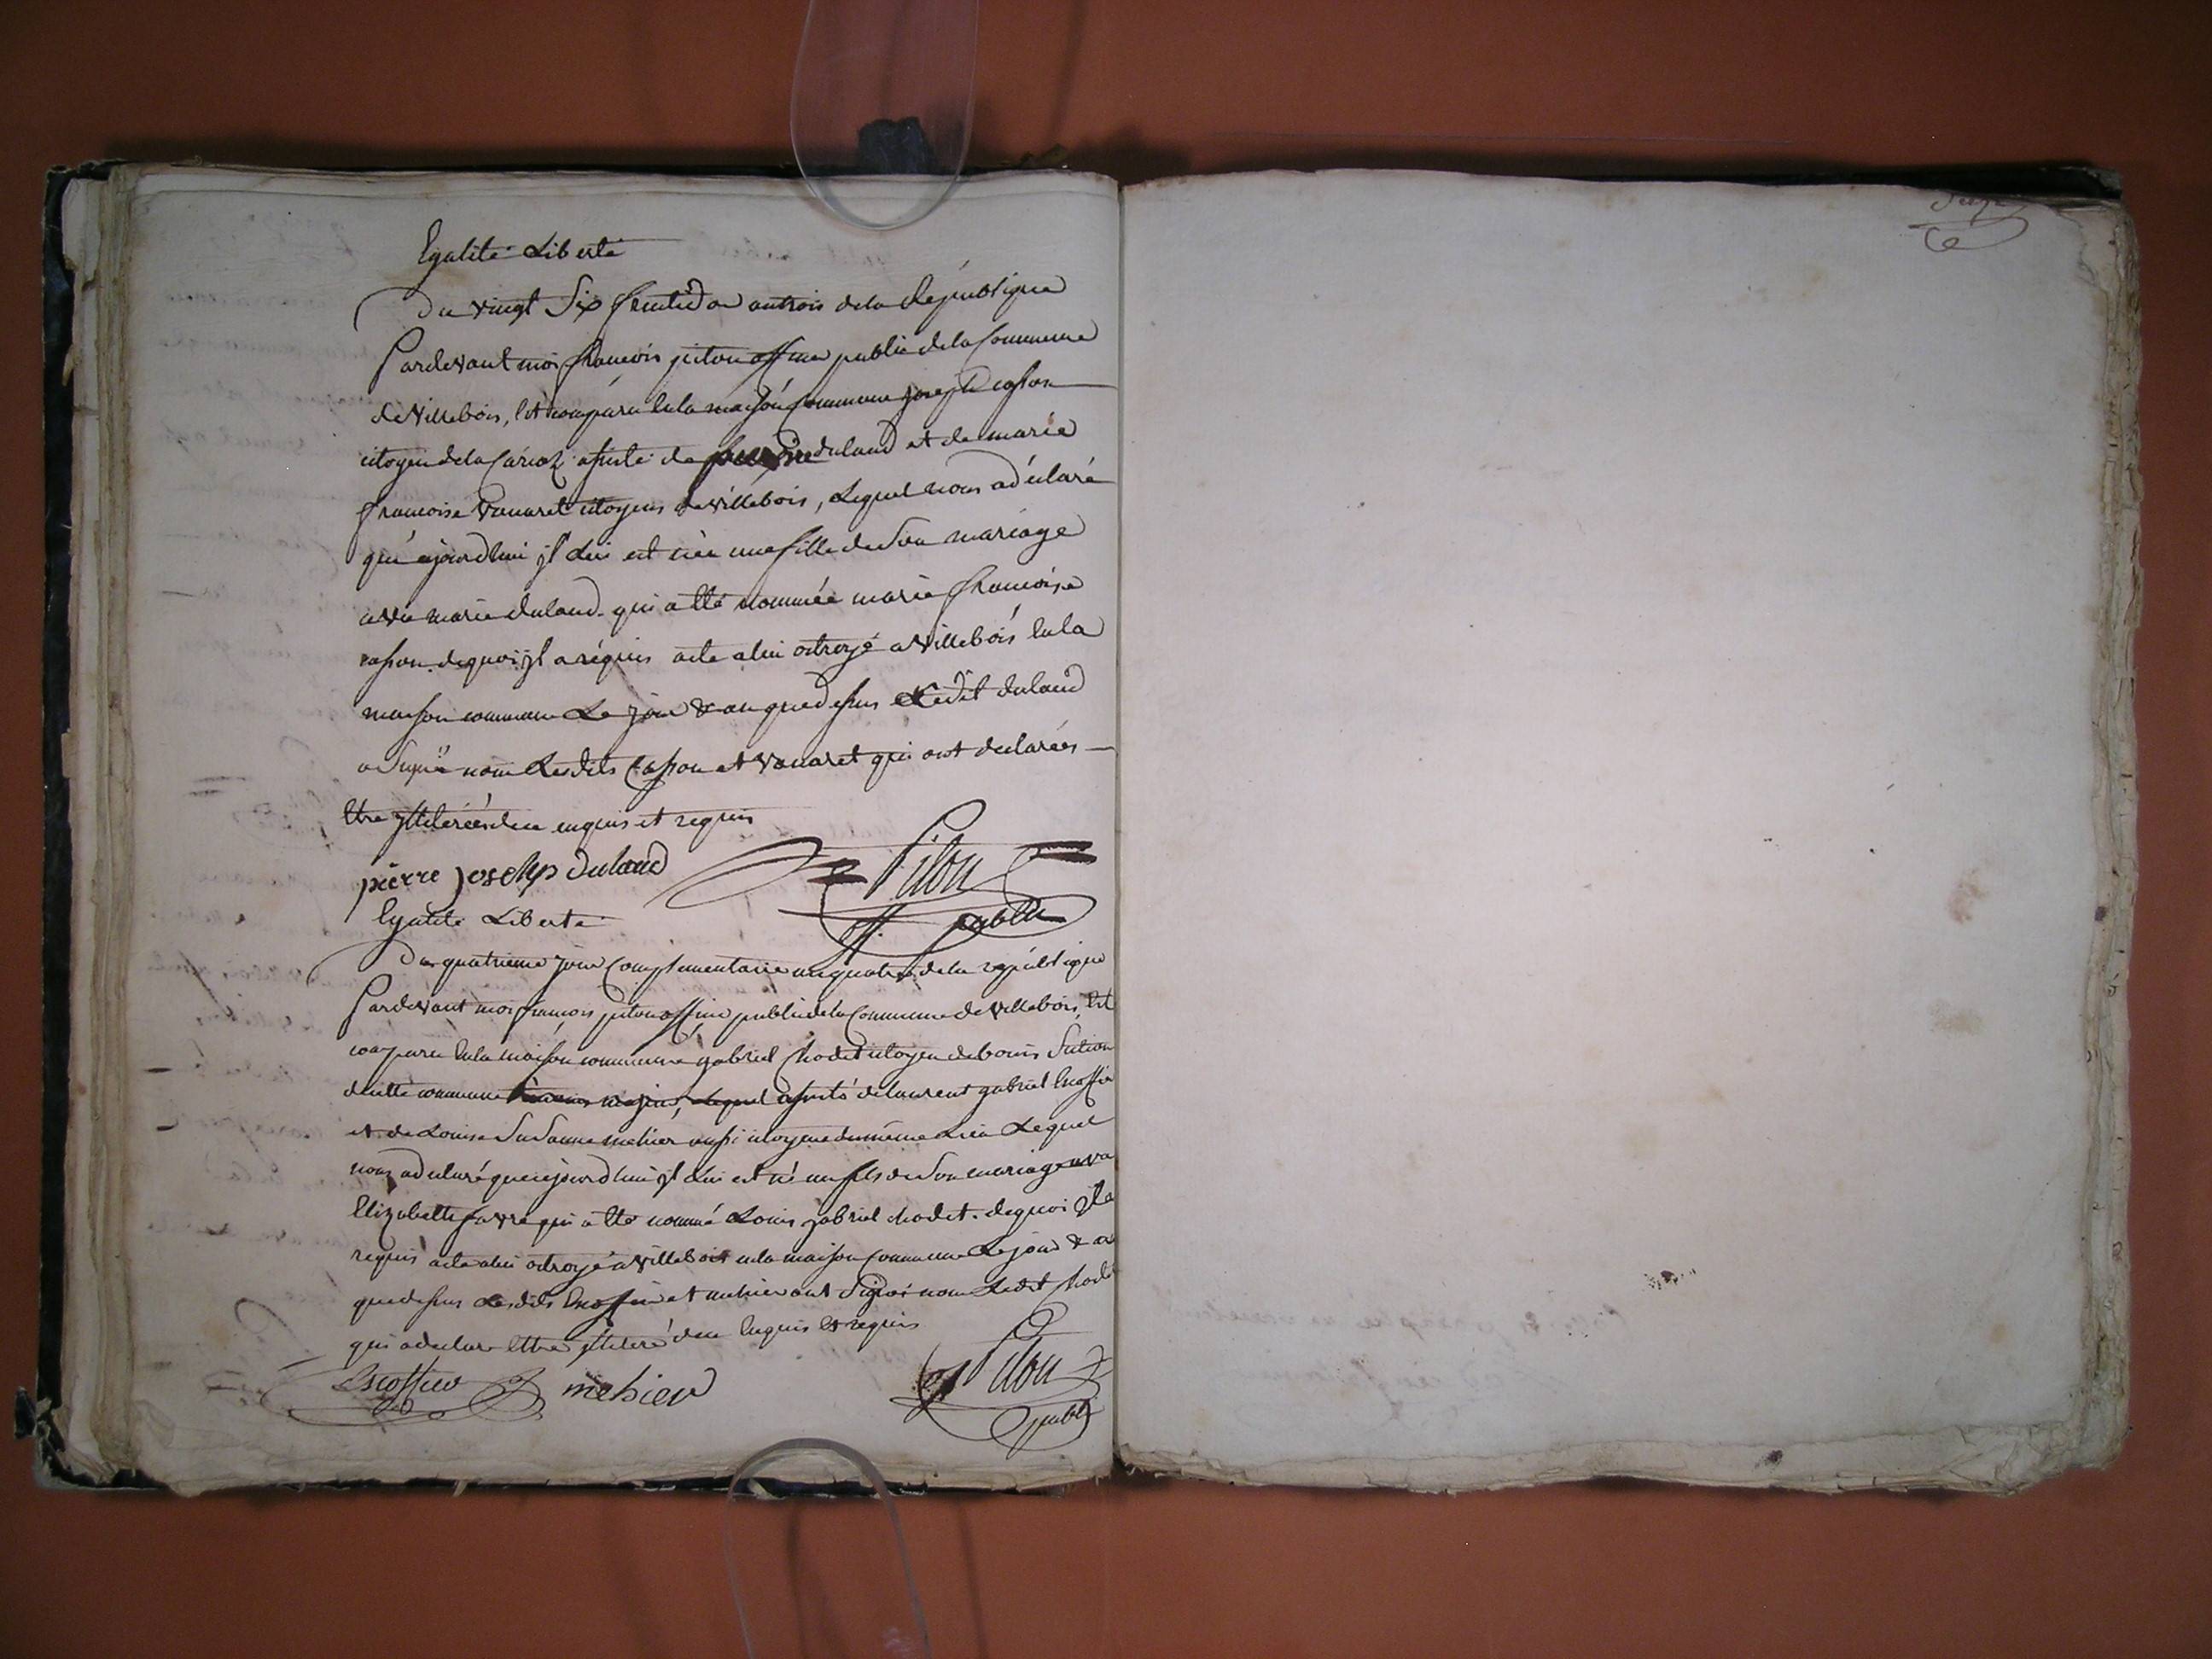 Egalité Liberté
Du vingt Six fructidor an trois de la République
Pardevant moi francois piton officier public de la Commune
de Villebois, Est comparu En la maison Commune joseph
citoyen de la assisté de pierre dulaud et de marie
francoise Vanaret citoyens de villebois, Lequel nous a déclaré
que ajourdhui jl Lui est née une fille de Son mariage
avec marie dulaud. qui a Eté nommée marie francoise
casson. dequoi jl a réquis acte a lui octroyé a Villebois En la
maison commune Le jour & an que dessus Ledit dulaud
a Signé non Lesdits Casson et Vanaret qui ont declarées
Etre jlleterées de ce enquis et requis
pierre joseph dulaud Piton
off. public
Egalité Liberté
Du quatrieme jour Complementaire an quatre de la république
Pardevant moi francois piton officier public de la Commune de Villebois, Est
comparu En la maison commune gabriel chodet citoyen de bouis Section
de cette commune assisté de laurent gabriel Escoffier
et de Louise Susanne mehier aussi citoyens du même Lieu Lequel
nous a declaré que ajourdhui jl Lui est né un fils de Son mariage avec
Elizabette favre qui a Eté nommé Louis gabriel chodet. dequoi jl a
requis acte a lui octroyé a Villebois en la maison Commune Le jour & an
que dessus Lesdits Escoffier et mehier ont Signé non Ledit chodet
qui a declaré Etre jlleteré de ce Enquis & requis
Escoffier mehier Piton
public